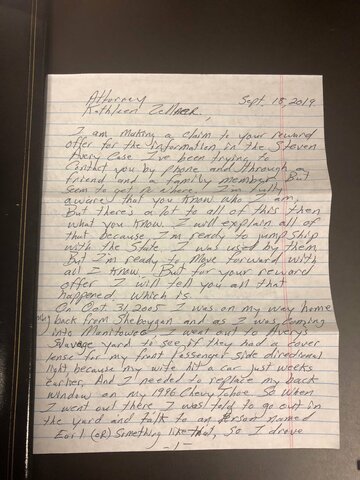 Attorney Sept. 18, 2019
Kathleen Zellner,
I am making a claim to your reward
offer for the information in the Steven
Avery Case. I've been trying to
contact you by phone and through a
friend and a family member. But
seem to get no where. I'm fully
aware that you know who I am.
But there's a lot to all of this then
what you know. I will explain all of
that because I'm ready to jump ship
with the State. I was used by them
But I'm ready to move forward with
all I know. But for your reward
offer I will tell you all that
happened, which is.
On Oct. 31, 2005 I was on my way home
back from Sheboygan and as I was coming
into Manitowoc I went out to Averys
Salvage yard to see if they had a cover
lense for my front passenger side directional
light, because my wife hit a car just weeks
earlier. And I needed to replace my back
window on my 1986 Chevy Tahoe. So when
I went out there I was told to go out in
the yard and talk to an person named
Earl (or) something like that, so I drove
-1-